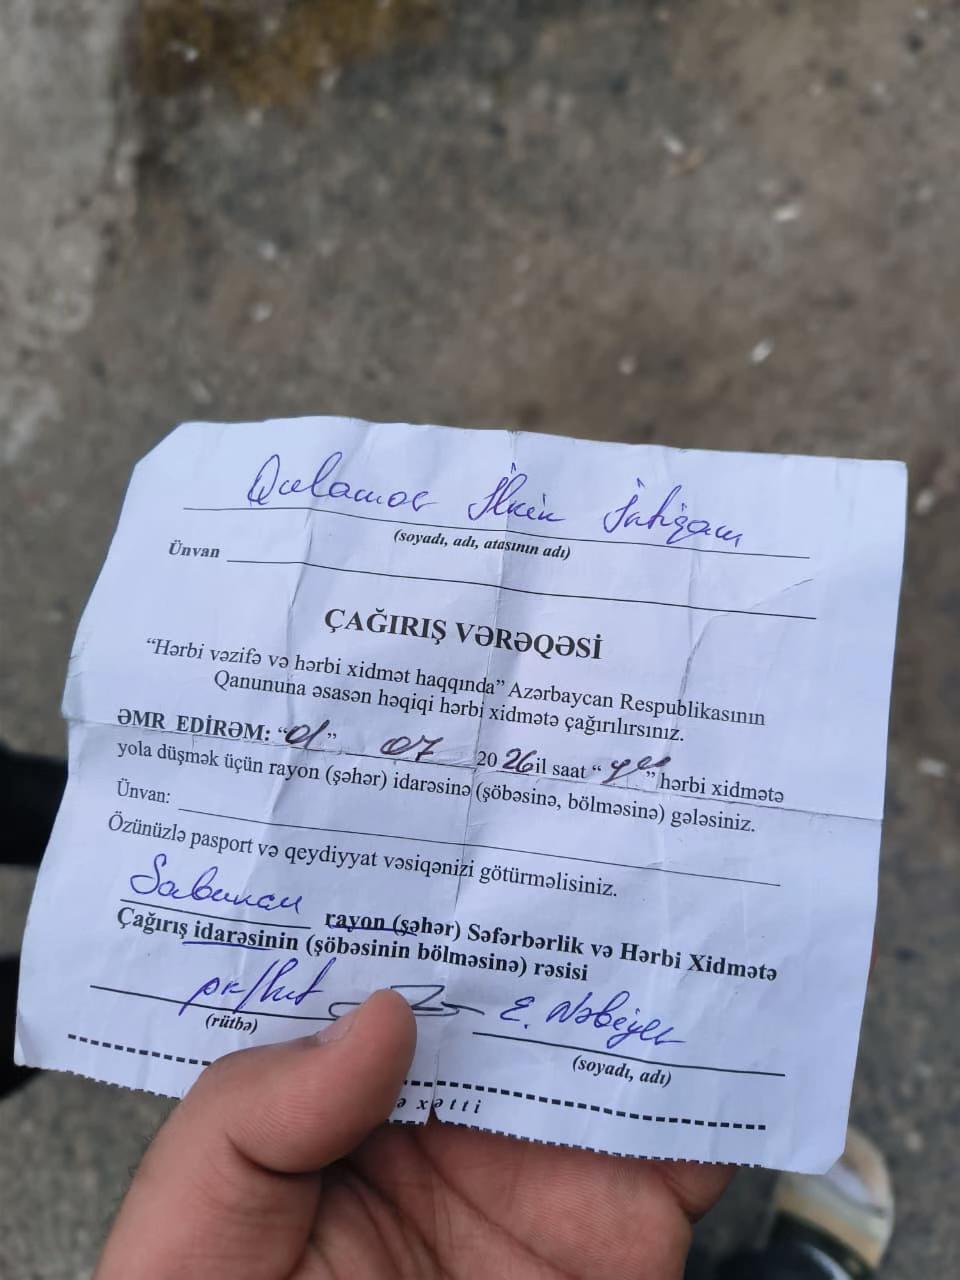 Qulamov İlkin İntiqam
(soyadı, adı, atasının adı)
Ünvan
ÇAĞIRIŞ VƏRƏQƏSİ
“Hərbi vəzifə və hərbi xidmət haqqında” Azərbaycan Respublikasının
Qanununa əsasən həqiqi hərbi xidmətə çağırılırsınız.
ƏMR EDİRƏM: “01” 07 2026 il saat “ ” hərbi xidmətə
yola düşmək üçün rayon (şəhər) idarəsinə (şöbəsinə, bölməsinə) gələsiniz.
Ünvan:
Özünüzlə pasport və qeydiyyat vəsiqənizi götürməlisiniz.
Sabunçu rayon (şəhər) Səfərbərlik və Hərbi Xidmətə
Çağırış idarəsinin (şöbəsinin bölməsinə) rəsisi
E. Nəbiyev
(rütbə)
(soyadı, adı)
ə xətti